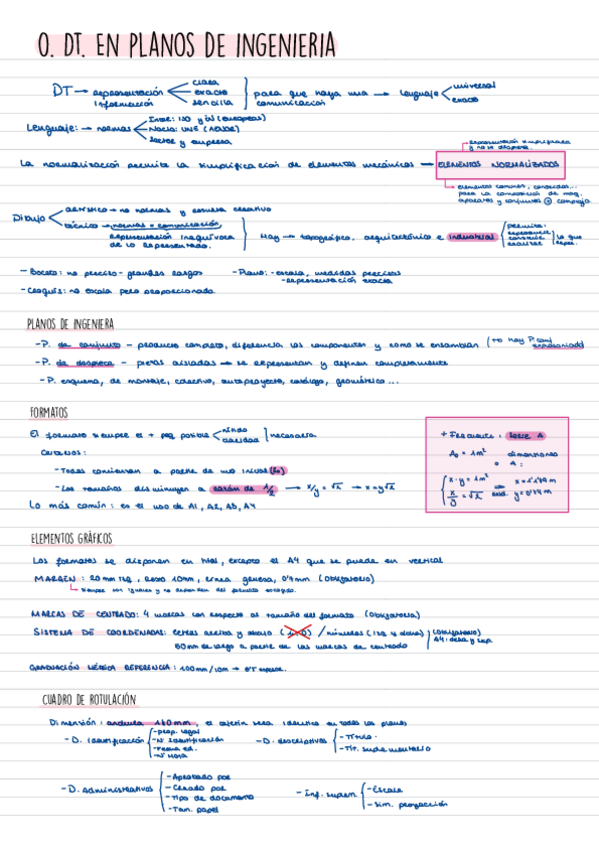 0. DT. EN PLANOS DE INGENIERIA
DT → representación información
clara
exacta
sencilla
para que haya una comunicación → lenguaje
universal
exacto
Lenguaje: → normas
Inter: ISO y EN (europeas)
Nacio: UNE (AENOR)
Sector y empresa
La normalización permite la simplificación de elementos mecánicos → ELEMENTOS NORMALIZADOS
representación simplificada y no se despieza
elementos comunes, conocidos...
para la construcción de maq.
aparatos y conjuntos complejos
Dibujo
artístico → no normas y es creativo
técnico → normas = comunicación,
representación inequívoca
de lo representado.
Hay → topográfico, arquitectónico e industrial
permite:
representar
construir
analizar
lo que
repre.
- Boceto: no preciso - grandes rasgos
- Plano: - escala, medidas precisas
- representación exacta
- Croquis: no escala pero proporcionado
PLANOS DE INGENIERA
- P. de conjunto - producto completo, diferencia los componentes y como se ensamblan
- P. de despiece - piezas aisladas → se representan y definen completamente
- P. esquema, de montaje, colectivo, anteproyecto, catálogo, geométrico ...
FORMATOS
El formato siempre el + peq posible
nítido
claridad
necesaria
Criterios:
- Todos comienzan a partir de uno inicial (A0)
- Los tamaños disminuyen a razón de 1/2 → x/y = √2 → x = y√2
Lo más común: es el uso de A1, A2, A3, A4
+ Frecuente: Serie A
A0 = 1 m²
dimensiones
A:
x·y = 1 m²
x/y = √2
x = 1'189 m
y = 0'841 m
ELEMENTOS GRÁFICOS
Los formatos se disponen en hztal, excepto el A4 que se puede en vertical
MARGEN: 20 mm izq, resto 10mm, línea gruesa, 0'7mm (Obligatorio)
siempre son iguales y no dependen del formato escogido.
MARCAS DE CENTRADO: 4 marcas con respecto al tamaño del formato (Obligatoria)
SISTEMA DE COORDENADAS: letras arriba y abajo / números (izq y dcha)
(Obligatorio)
A4: dcha y sup.
50mm de largo a partir de las marcas de centrado
GRADUACIÓN MÉTRICA REFERENCIA: 100mm / 10m → 0'5 espesor.
CUADRO DE ROTULACIÓN
Dimensión: anchura 180mm, el cajetín será idéntico en todos los planos
- D. identificación
- prop. legal
- Nº Identificación
- Fecha ed.
- Nº Hoja
- D. descriptivos
- Título
- Tit. suplementario
- D. Administrativos
- Aprobado por
- Creado por
- Tipo de documento
- Tam. papel
- Inf. suplem.
- Escala
- Sim. proyección